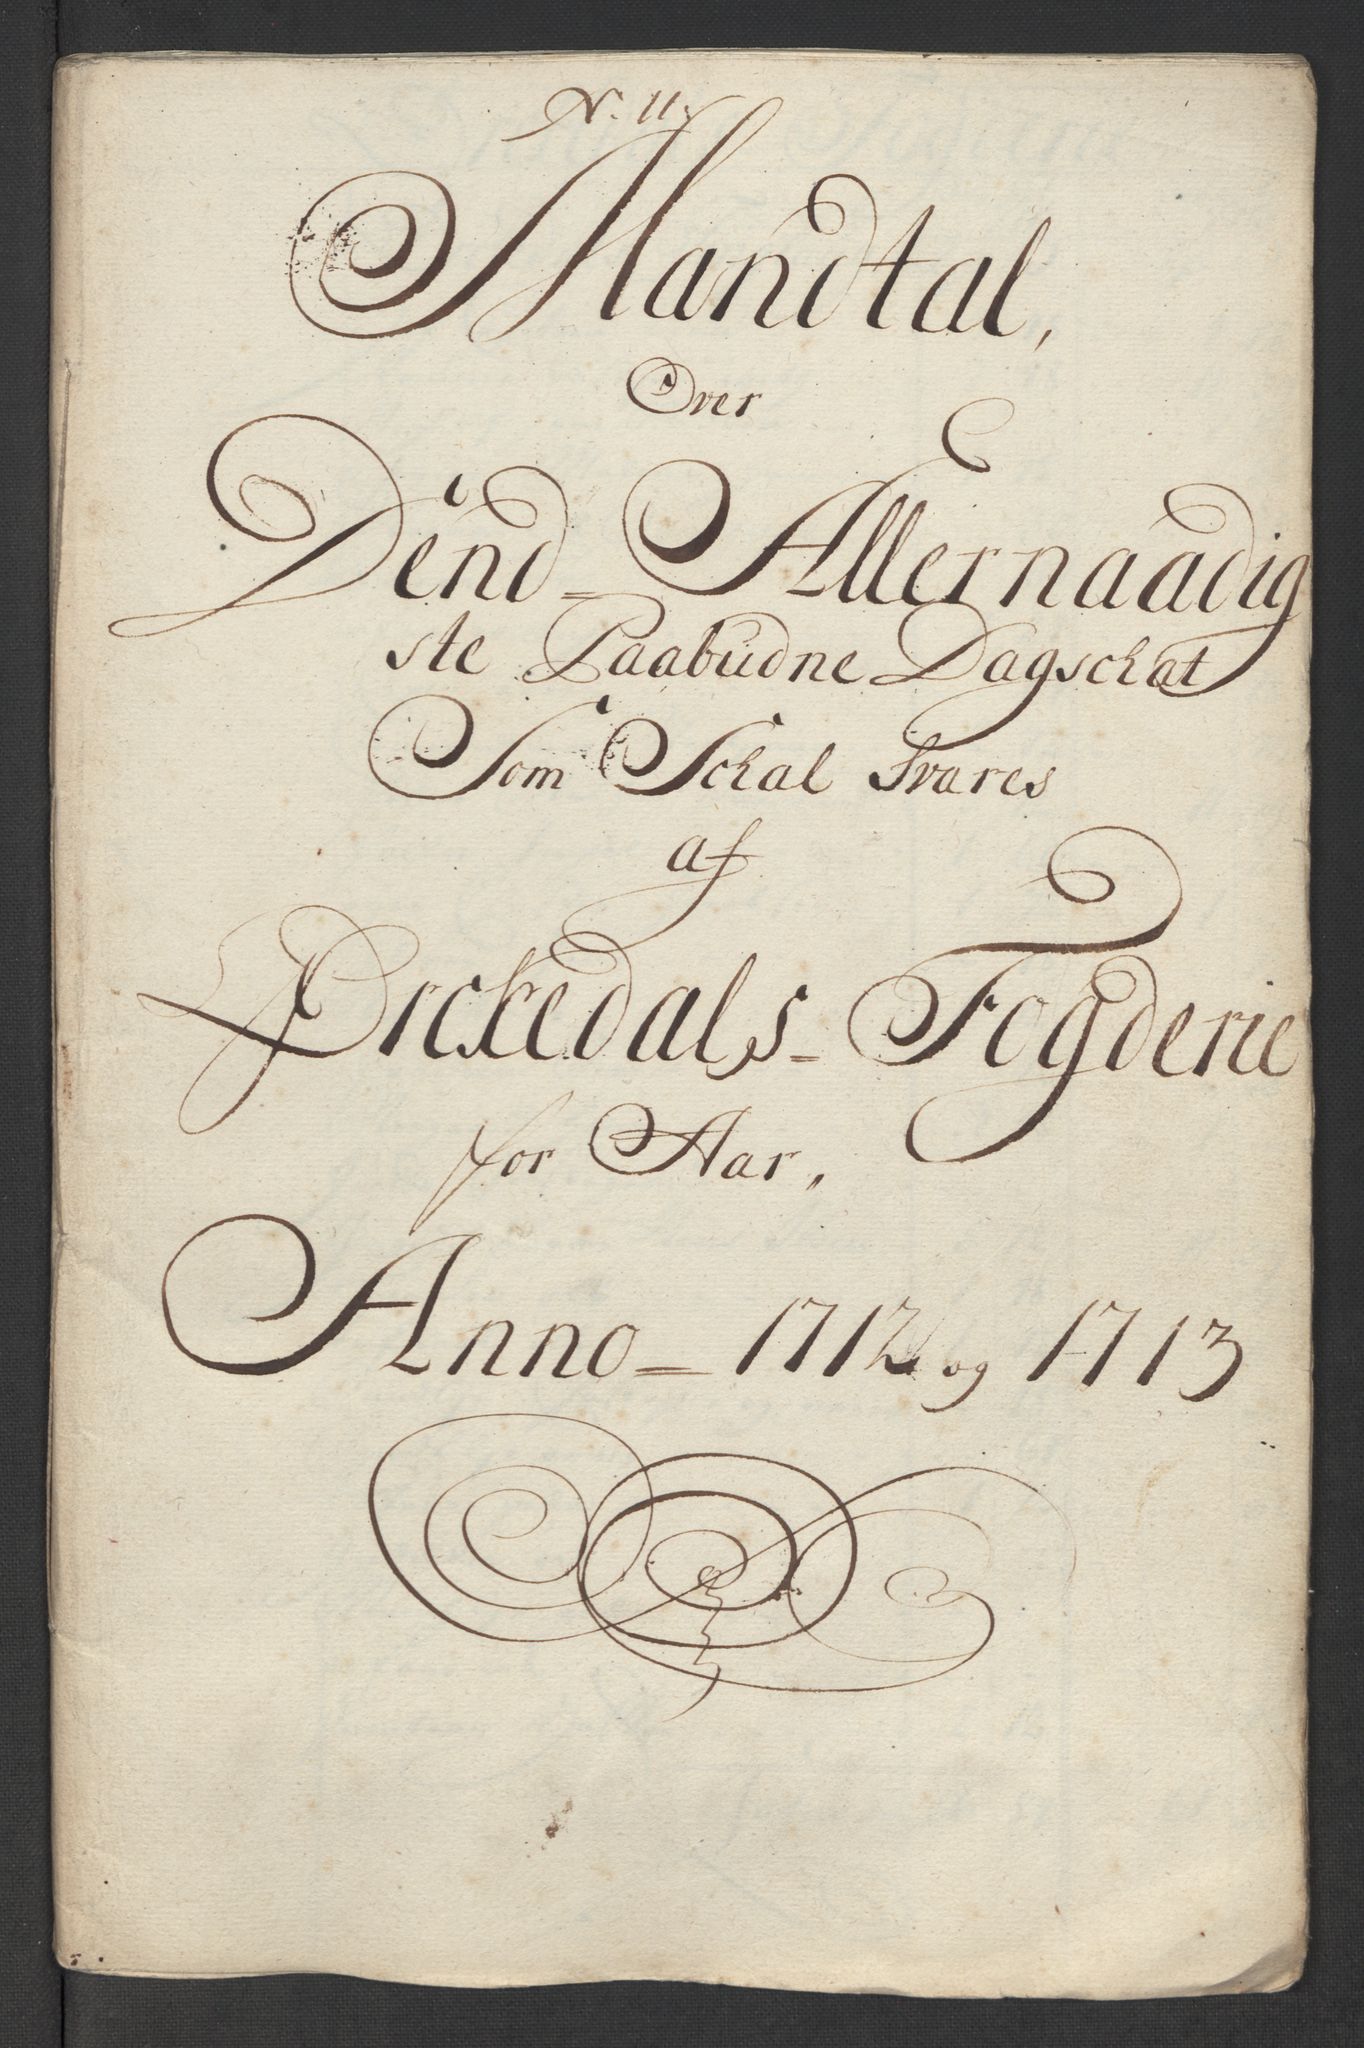 N. 11.
Mandtal,
Over
Dend_ Allernaadig
ste Paabudne Dagschat
Som Schal Svares
af
Ørckedals_ Fogderie
for Aar,
Anno_ 1712 og 1713